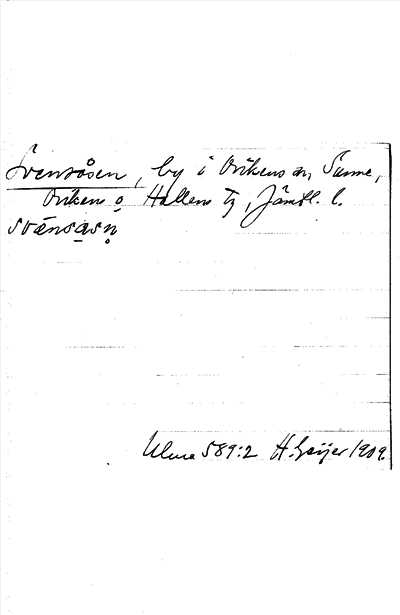 Svensåsen, by i Ovikens sn, Sunne,
Oviken o Hallens tg, Jämtl. l.
svänsasn
Ulma 589:2 H. Geijer 1909.